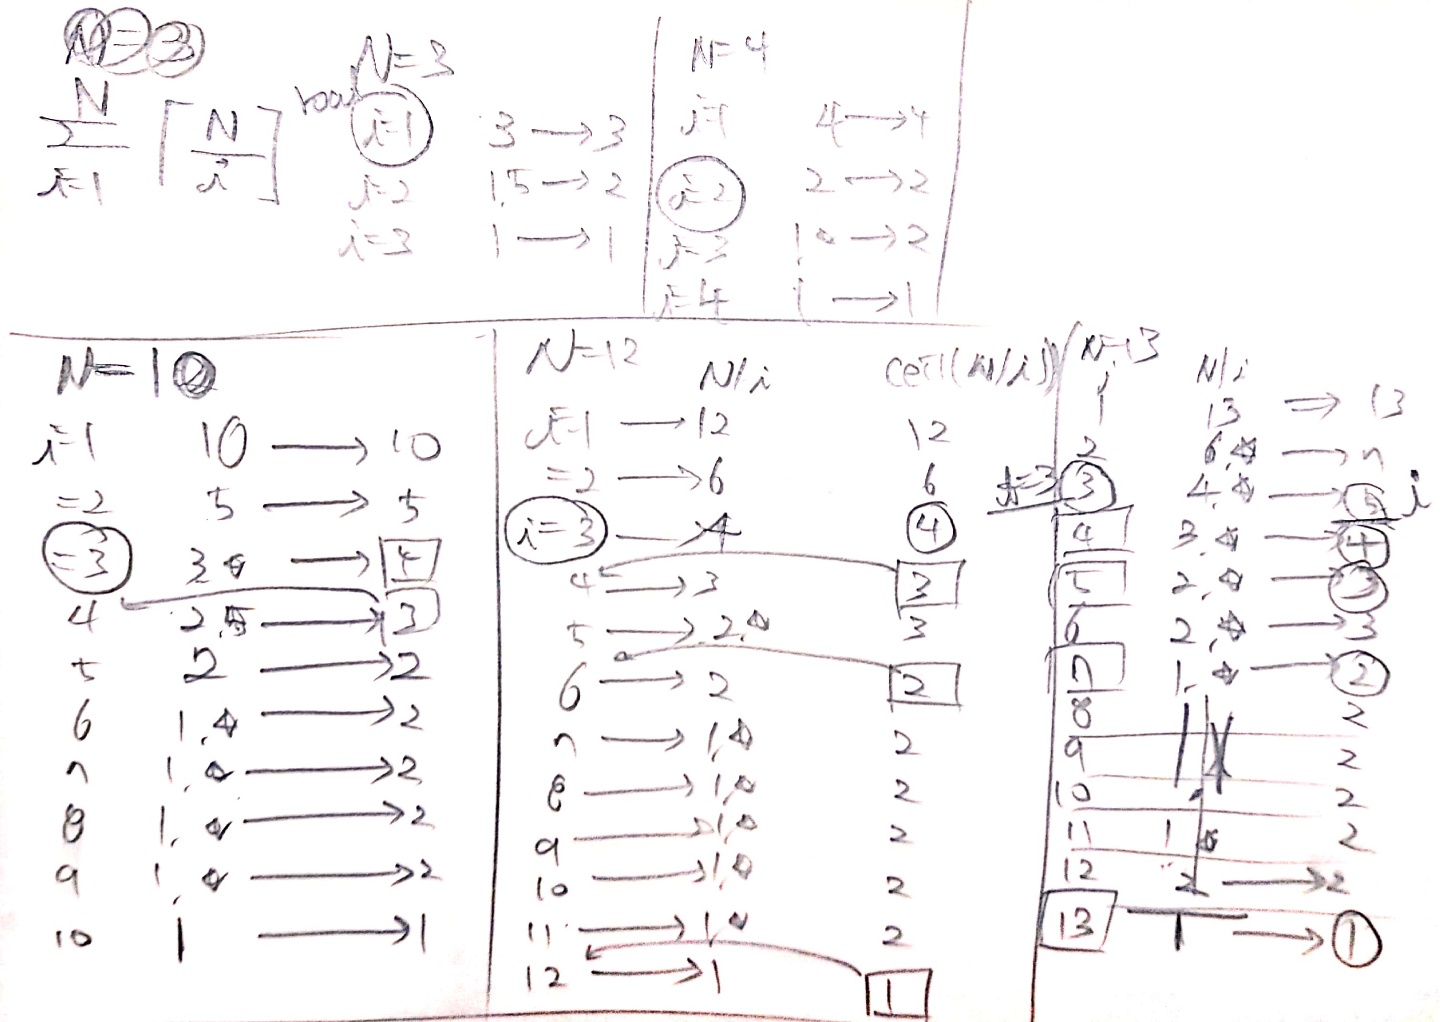 N=3
N
Σ ⌈N/i⌉
i=1
N=3
i=1 3 → 3
i=2 1.5 → 2
i=3 1 → 1
N=4
i=1 4 → 4
i=2 2 → 2
i=3 1.☆ → 2
i=4 1 → 1
N=10
i=1 10 → 10
=2 5 → 5
=3 3.☆ → 4
4 2.5 → 3
5 2 → 2
6 1.☆ → 2
7 1.☆ → 2
8 1.☆ → 2
9 1.☆ → 2
10 1 → 1
N=12
N/i ceil(N/i)
i=1 → 12 12
=2 → 6 6
i=3 → 4 4
4 → 3 3
5 → 2.☆ 3
6 → 2 2
7 → 1.☆ 2
8 → 1.☆ 2
9 → 1.☆ 2
10 → 1.☆ 2
11 → 1.☆ 2
12 → 1 1
N=13
i N/i
1 13 ⇒ 13
2 6.☆ → 7
3 4.☆ → 5 i
4 3.☆ → 4
5 2.☆ → 3
6 2.☆ → 3
7 1.☆ → 2
8 2
9 2
10 2
11 1 ☆ 2
12 2 → 2
13 1 → 1